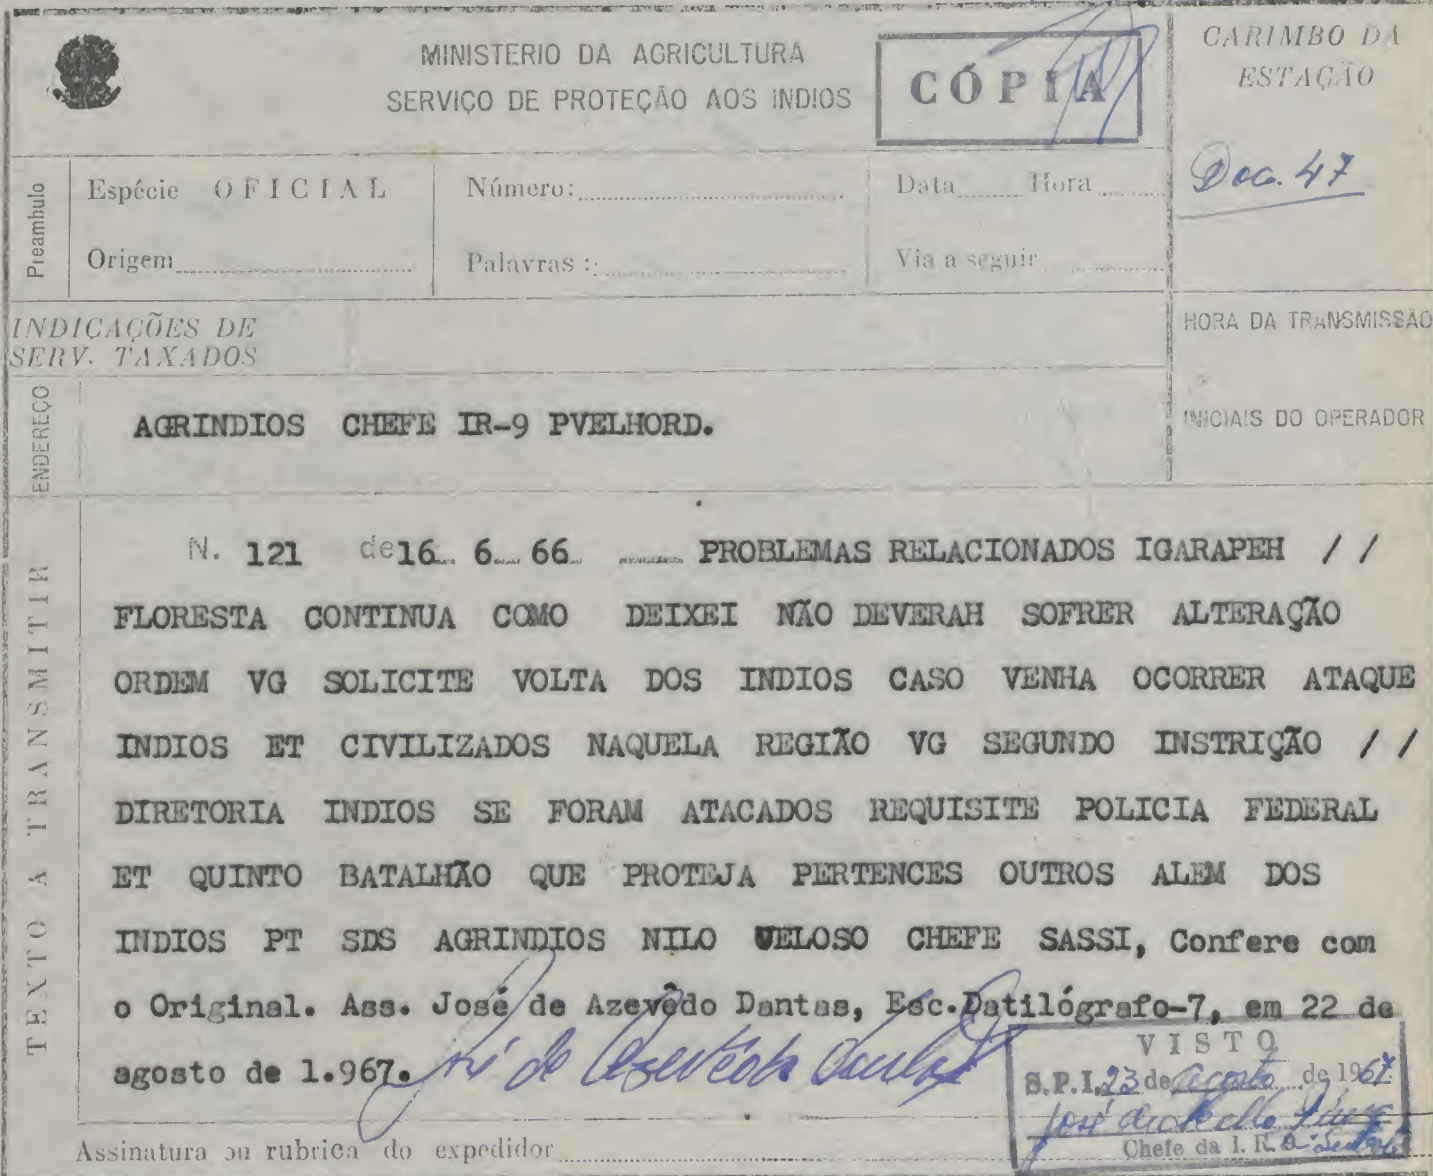 MINISTERIO DA AGRICULTURA
SERVIÇO DE PROTEÇÃO AOS INDIOS
CÓPIA
CARIMBO DA
ESTAÇÃO
Doc. 47
Preambulo
Espécie OFICIAL
Número:
Data Hora
Origem
Palavras :
Via a seguir
INDICAÇÕES DE
SERV. TAXADOS
HORA DA TRANSMISSÃO
INICIAIS DO OPERADOR
ENDEREÇO
AGRINDIOS CHEFE IR-9 PVELHORD.
TEXTO A TRANSMITIR
N. 121 de 16 6 66 PROBLEMAS RELACIONADOS IGARAPEH / /
FLORESTA CONTINUA COMO DEIXEI NÃO DEVERAH SOFRER ALTERAÇÃO
ORDEM VG SOLICITE VOLTA DOS INDIOS CASO VENHA OCORRER ATAQUE
INDIOS ET CIVILIZADOS NAQUELA REGIÃO VG SEGUNDO INSTRIÇÃO / /
DIRETORIA INDIOS SE FORAM ATACADOS REQUISITE POLICIA FEDERAL
ET QUINTO BATALHÃO QUE PROTEJA PERTENCES OUTROS ALEM DOS
INDIOS PT SDS AGRINDIOS NILO VELOSO CHEFE SASSI, Confere com
o Original. Ass. José de Azevêdo Dantas, Esc.Datilógrafo-7, em 22 de
agosto de 1.967. José de Azevêdo Dantas
VISTO
S.P.I. 23 de agosto de 1967
José de Mello
Chefe da I. R. 9
Assinatura ou rubrica do expedidor